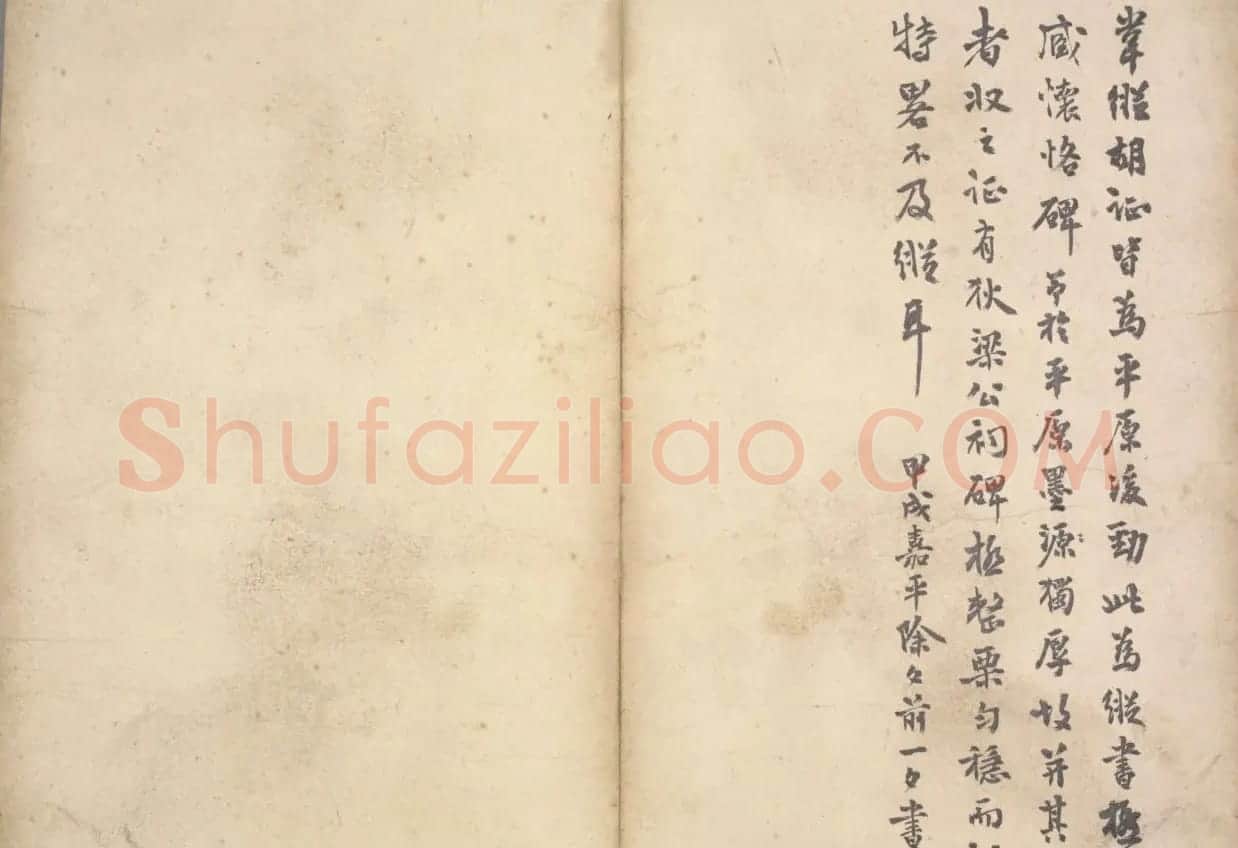 韋縱胡証皆為平原後勁此為縱書極
臧懷恪碑弟於平原墨源獨厚故并其
者收之証有狄梁公祠碑極整栗匀穩而
特畧不及縱耳
甲戌嘉平除夕前一夕書
Shufaziliao.COM